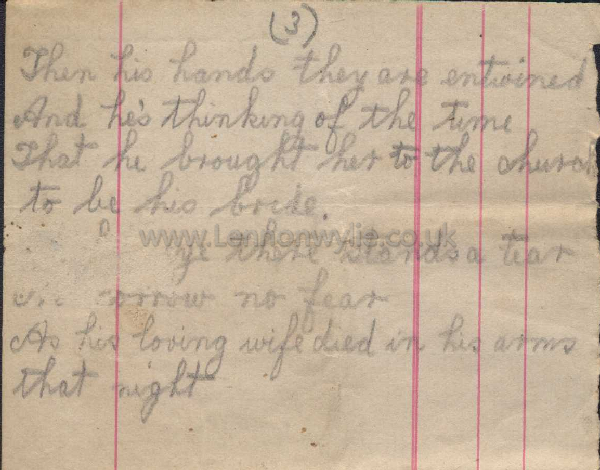 (3)
Then his hands they are entwined
And he's thinking of the time
That he brought her to the church
to be his bride.
www.Lennonwylie.co.uk
ye there stands a tear
sorrow no fear
As his loving wife died in his arms
that night